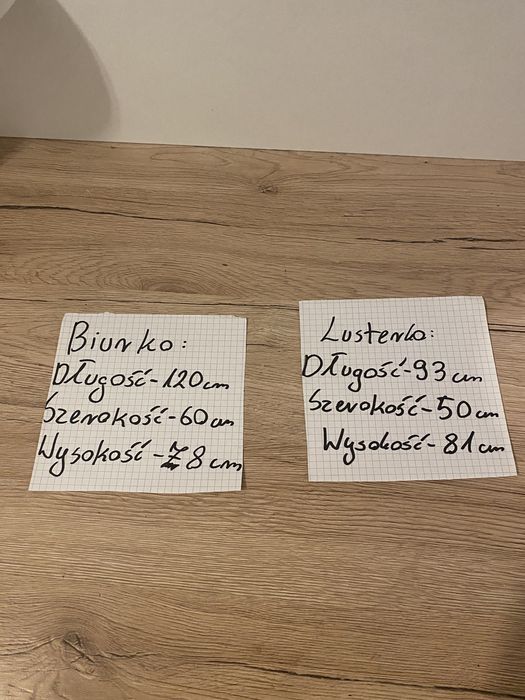 Biurko:
Długość-120cm
Szerokość-60cm
Wysokość-78cm
Lusterko:
Długość-93cm
Szerokość-50cm
Wysokość-81cm